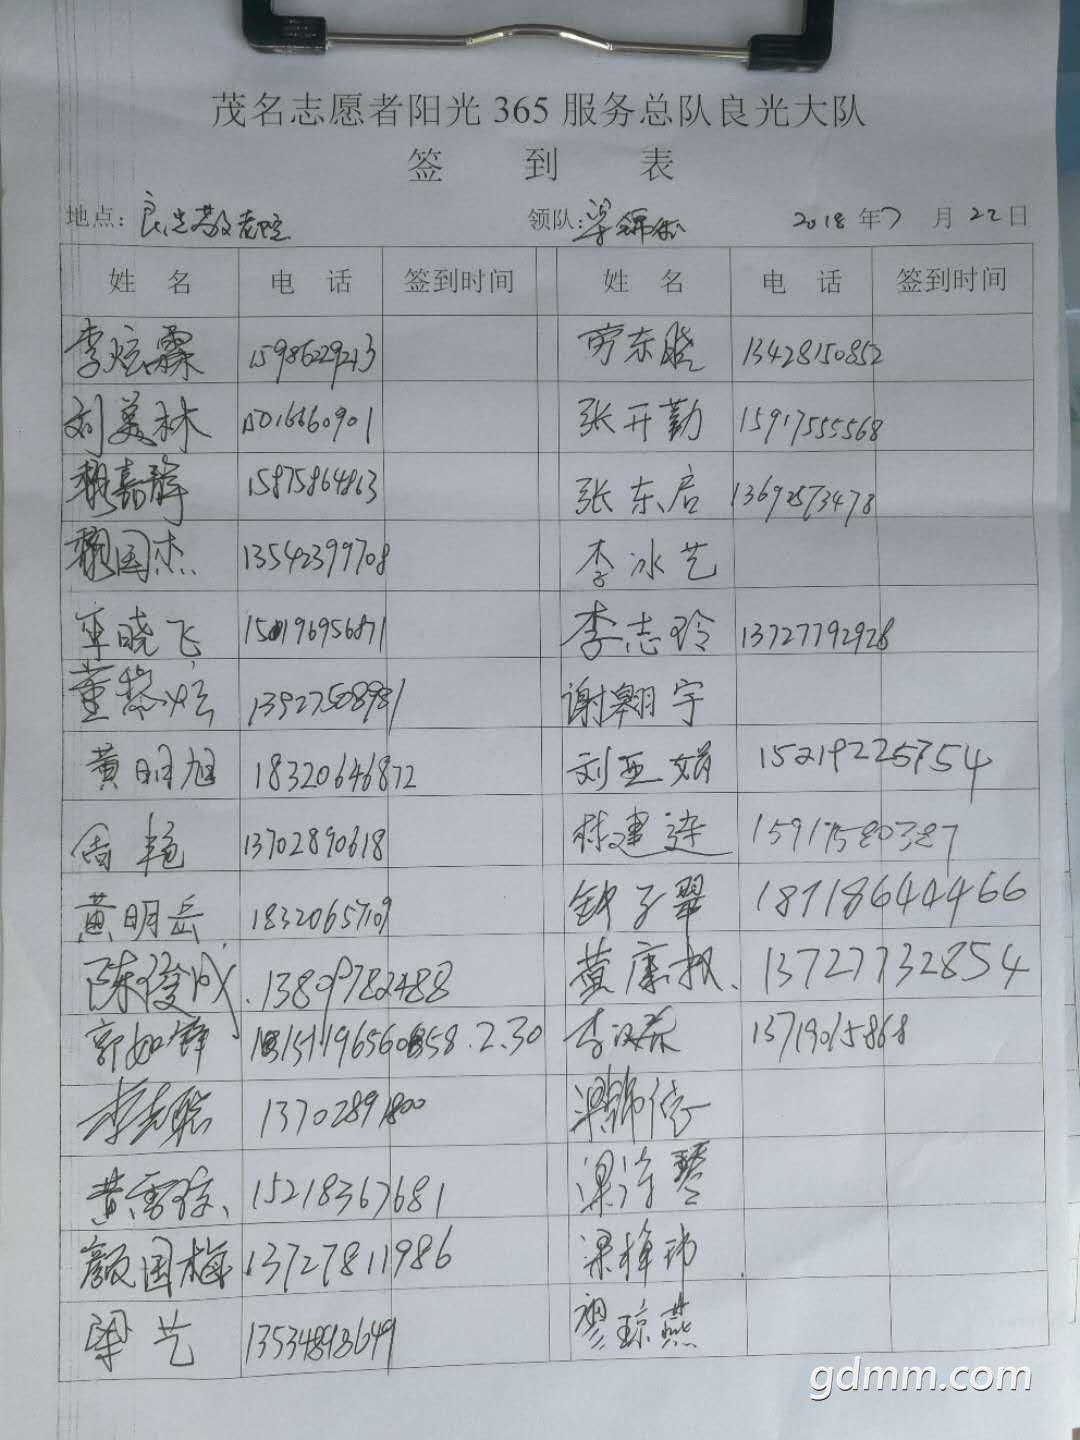 茂名志愿者阳光 365 服务总队良光大队
签 到 表
地点：良光敬老院 领队：梁锦信 2018 年 7 月 22 日
姓 名 电 话 签到时间 姓 名 电 话 签到时间
李炫霖 15986229213 劳东晓 13428150852
刘美林 15016660901 张开勤 15917555568
赖嘉辉 15875864813 张东启 13692573478
赖国杰 13542399708 李冰艺
车晓飞 15019695687 李志玲 13727792928
董黎炫 13927508981 谢翱宇
黄明旭 18320646872 刘亚娟 15219225754
周艳 13702890618 林建连 15917580387
黄明岳 18320657109 钟子翠 18718644466
陈俊成 13809782488 黄康权 13727732854
郭如锋 13719015868
13702891800 梁锦信
黄雪 15218367681 梁
颜国梅 13727811986 梁
梁艺 13534893649 廖琼燕
gdmm.com